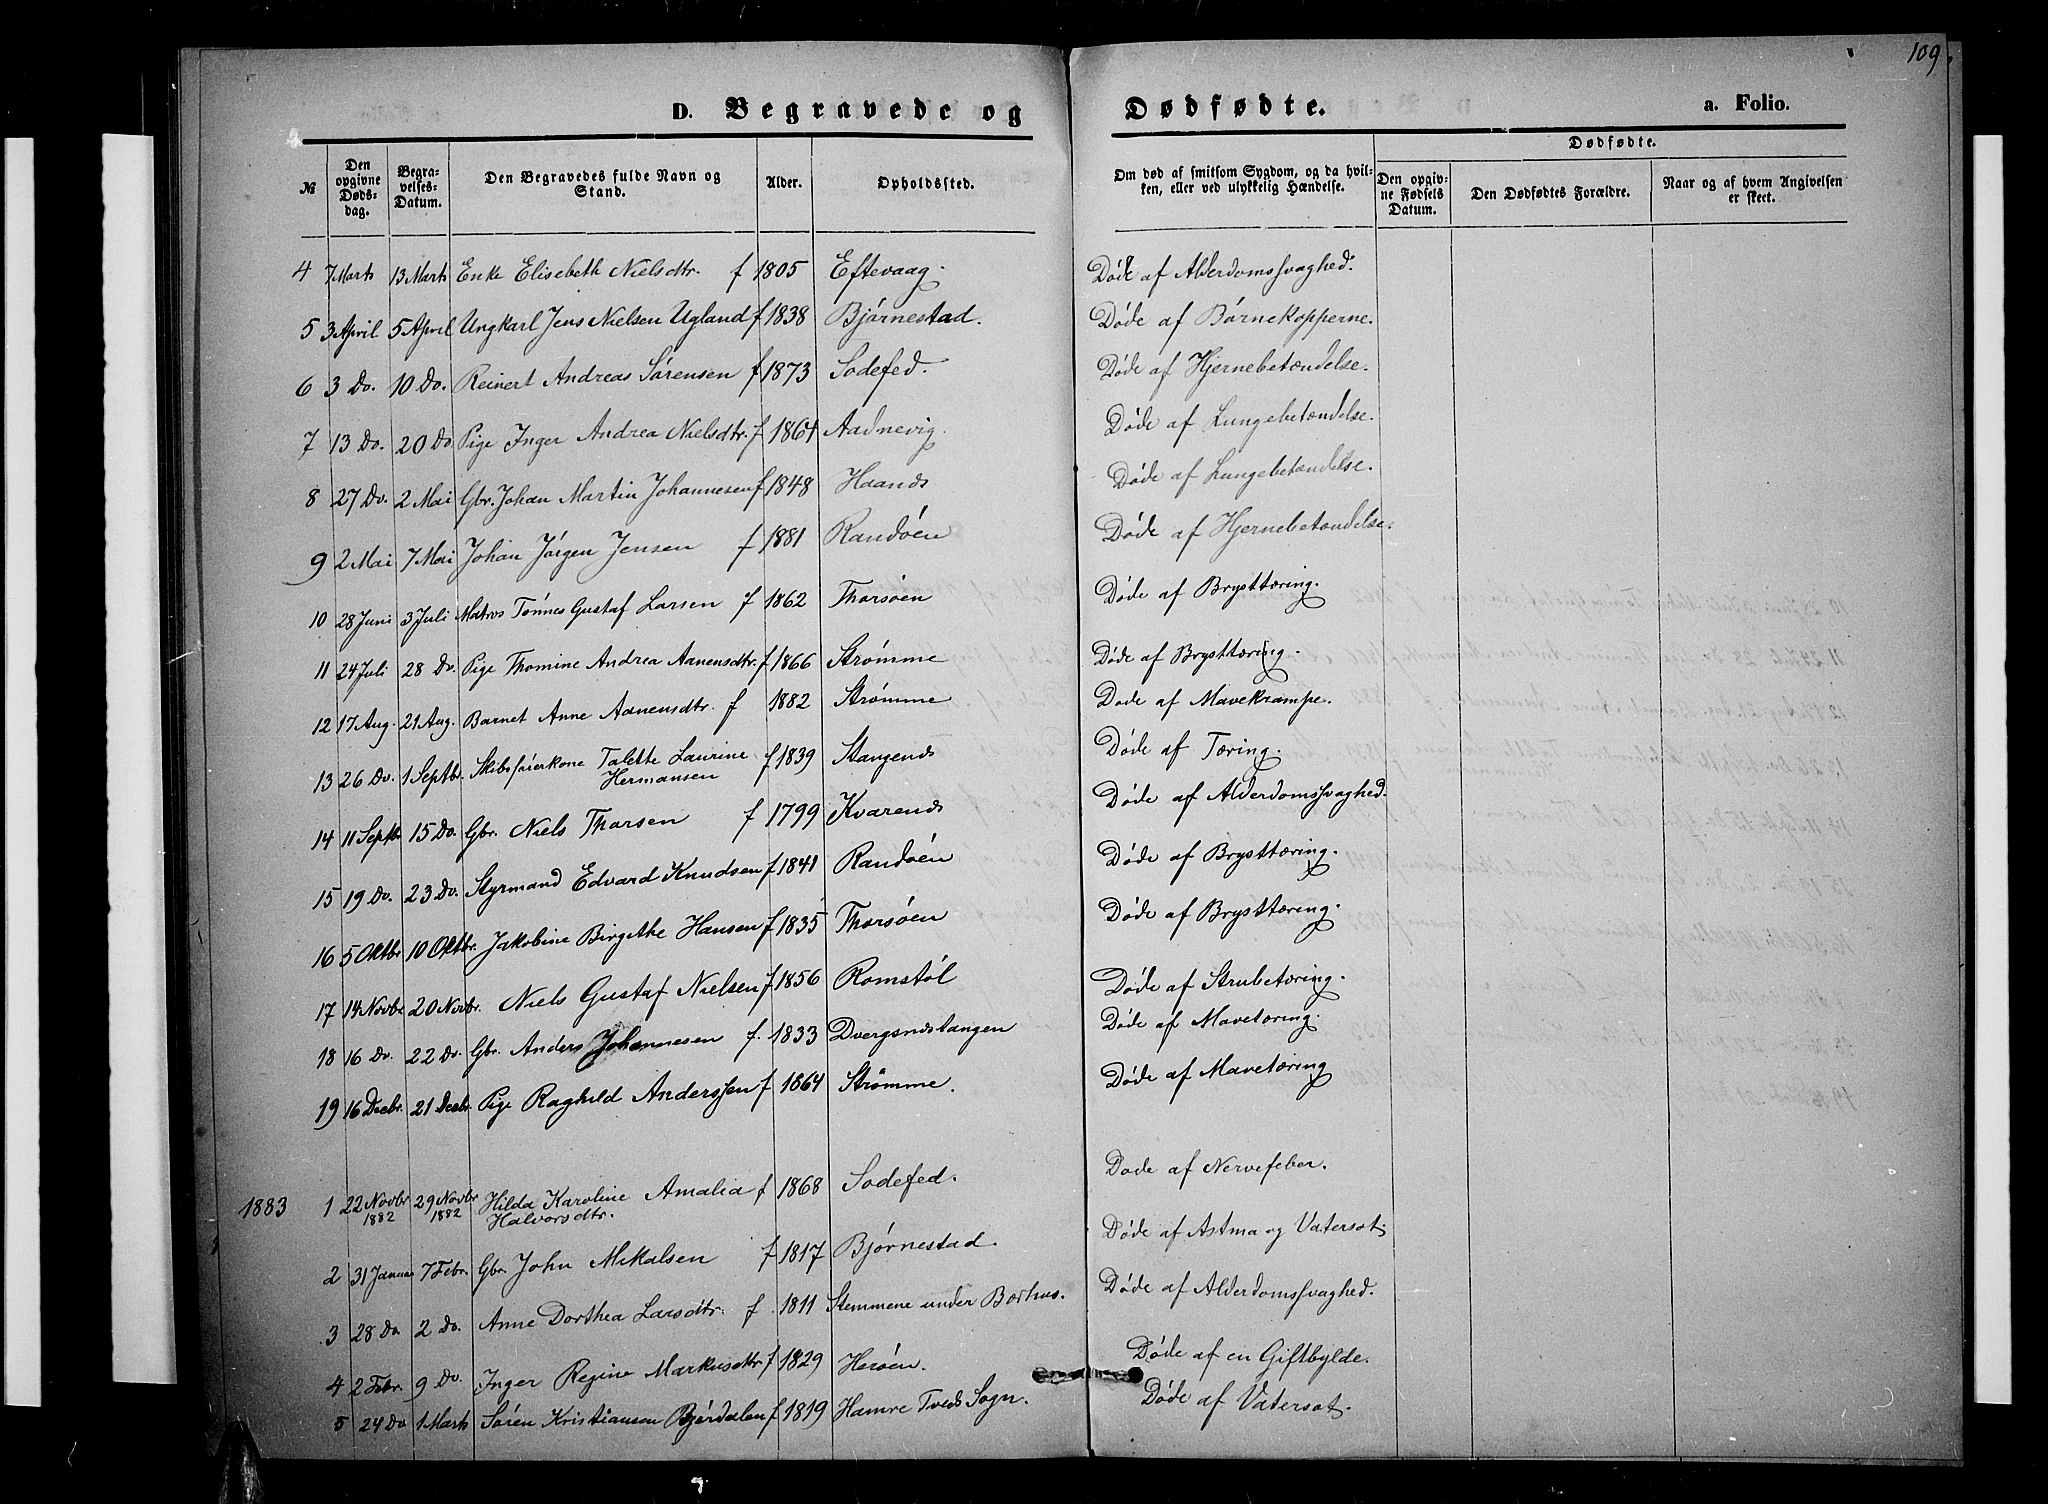 109.
D. Begravede og Dødfødte. a. Folio.
Dødfødte.
№ Den opgivne Dødsdag. Begravelses-Datum. Den Begravedes fulde Navn og Stand. Alder. Opholdssted. Om død af smitsom Sygdom, og da hvilken, eller ved ulykkelig Hændelse. Den opgivne Fødsels Datum. Den Dødfødtes Forældre. Naar og af hvem Angivelsen er skeet.
4 7 Marts 13 Marts Enke Elisabeth Nielsdtr. f 1805 Eftevaag. Døde af Alderdomssvaghed.
5 3 April 5 April Ungkarl Jens Nielsen Ugland f 1838 Bjørnestad. Døde af Børnekopperne.
6 3 Do. 10 Do. Reinert Andreas Sørensen f 1873 Sodefed. Døde af Hjernebetændelse.
7 13 Do. 20 Do Pige Inger Andrea Nielsdtr. f 1864 Aadnevig. Døde af Lungebetændelse.
8 27 Do. 2 Mai Gbr. Johan Martin Johannesen f 1848 Haanes Døde af Lungebetændelse.
9 2 Mai 7 Mai Johan Jørgen Jensen f 1881 Randøen Døde af Hjernebetændelse.
10 28 Juni 3 Juli Matros Tønnes Gustaf Larsen f 1862 Thorsøen Døde af Brysttæring.
11 24 Juli 28 Do. Pige Thomine Andrea Aanensdtr. f 1866 Strømme Døde af Brysttæring.
12 17 Aug. 21 Aug. Barnet Anne Aanensdtr. f 1882 Strømme Døde af Mavekrampe.
13 26 Do. 1 Septbr. Skibsførerkone Talette Laurine f 1839 Stangenes Døde af Tæring.
Hermansen
14 11 Septbr 15 Do. Gbr. Niels Thorsen f 1799 Kvarenes Døde af Alderdomssvaghed.
15 19 Do. 23 Do. Styrmand Edvard Knudsen f 1841 Randøen Døde af Brysttæring.
16 5 Oktbr 10 Oktbr. Jakobine Birgithe Hansen f 1835 Thorsøen Døde af Brysttæring.
17 14 Novbr 20 Novbr. Niels Gustaf Nielsen f 1856 Romstøl Døde af Strubetæring.
18 16 Do. 22 Do. Gbr. Anders Johannesen f. 1833 Dvergsnestangen Døde af Mavetæring.
19 16 Decbr. 21 Decbr. Pige Raghild Anderssen f 1864 Strømme. Døde af Mavetæring
1883 1 22 Novbr 29 Novbr Hilda Karoline Amalia f 1868 Sodefed. Døde af Nervefeber.
1882 1882 Halvorsdtr.
2 31 Januar 7 Febr. Gbr. John Mikalsen f 1817 Bjørnestad. Døde af Astma og Vatersot.
3 28 Do 2 Do. Anne Dorthea Larsdtr. f. 1811 Stemmene under Bærhus. Døde af Alderdomssvaghed.
4 2 Febr. 9 Do. Inger Regine Markusdtr f 1829 Herøen. Døde af en Giftbylde.
5 24 Do 1 Marts Søren Kristiansen Bjørdalen f 1819 Hamre Tveds Sogn. Døde af Vatersot.